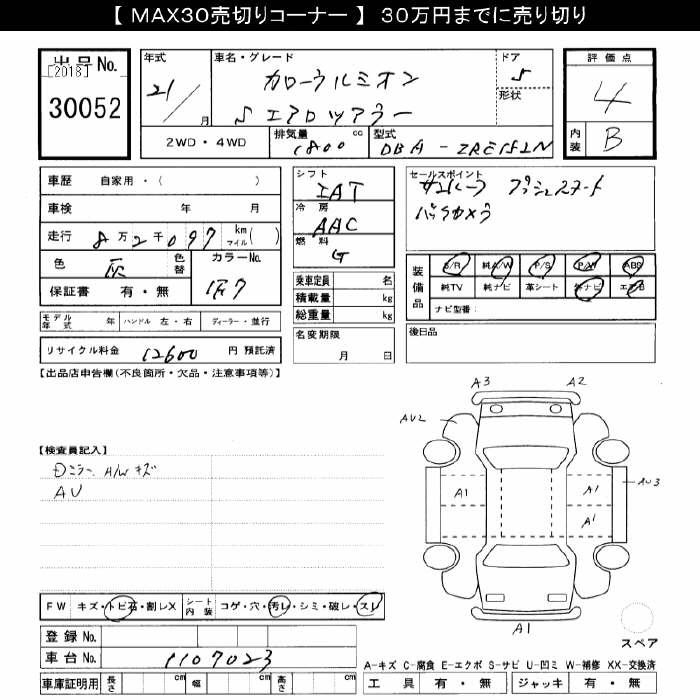 【 MAX30売切りコーナー 】 30万円までに売り切り
出品No.
[2018]
30052
年式
21/
月
車名・グレード
カローラルミオン
S エアロツアラー
ドア
5
形状
評価点
4
内装
B
2WD・4WD
排気量
cc
1800
型式
DBA - ZRE152N
車歴 自家用・( )
車検 年 月
走行 8万2千097 km マイル( )
色 灰 色替
カラーNo.
1E7
保証書 有・無
モデル年式 年 ハンドル 左・右 ディーラー・並行
リサイクル料金 12600 円 預託済
シフト
IAT
冷房
AAC
燃料
G
乗車定員 名
積載量 kg
総重量 kg
名変期限
月 日
セールスポイント
プッシュスタート
バックカメラ
装備品
S/R 純A/W P/S P/W ABS
純TV 純ナビ 革シート エアB
ナビ型番:
後日品
【出品店申告欄(不良箇所・欠品・注意事項等)】
【検査員記入】
ミラー、A/W キズ
AU
FW キズ・トビ石・割レX シート内装 コゲ・穴・汚レ・シミ・破レ・スレ
登録No.
車台No. 1107023
車庫証明用 長さ cm 幅 cm 高さ cm
A3
A2
AU2
AU3
A1
A1
A1
A1
スペア
A-キズ C-腐食 E-エクボ S-サビ U-凹ミ W-補修 XX-交換済
工具 有・無 ジャッキ 有・無